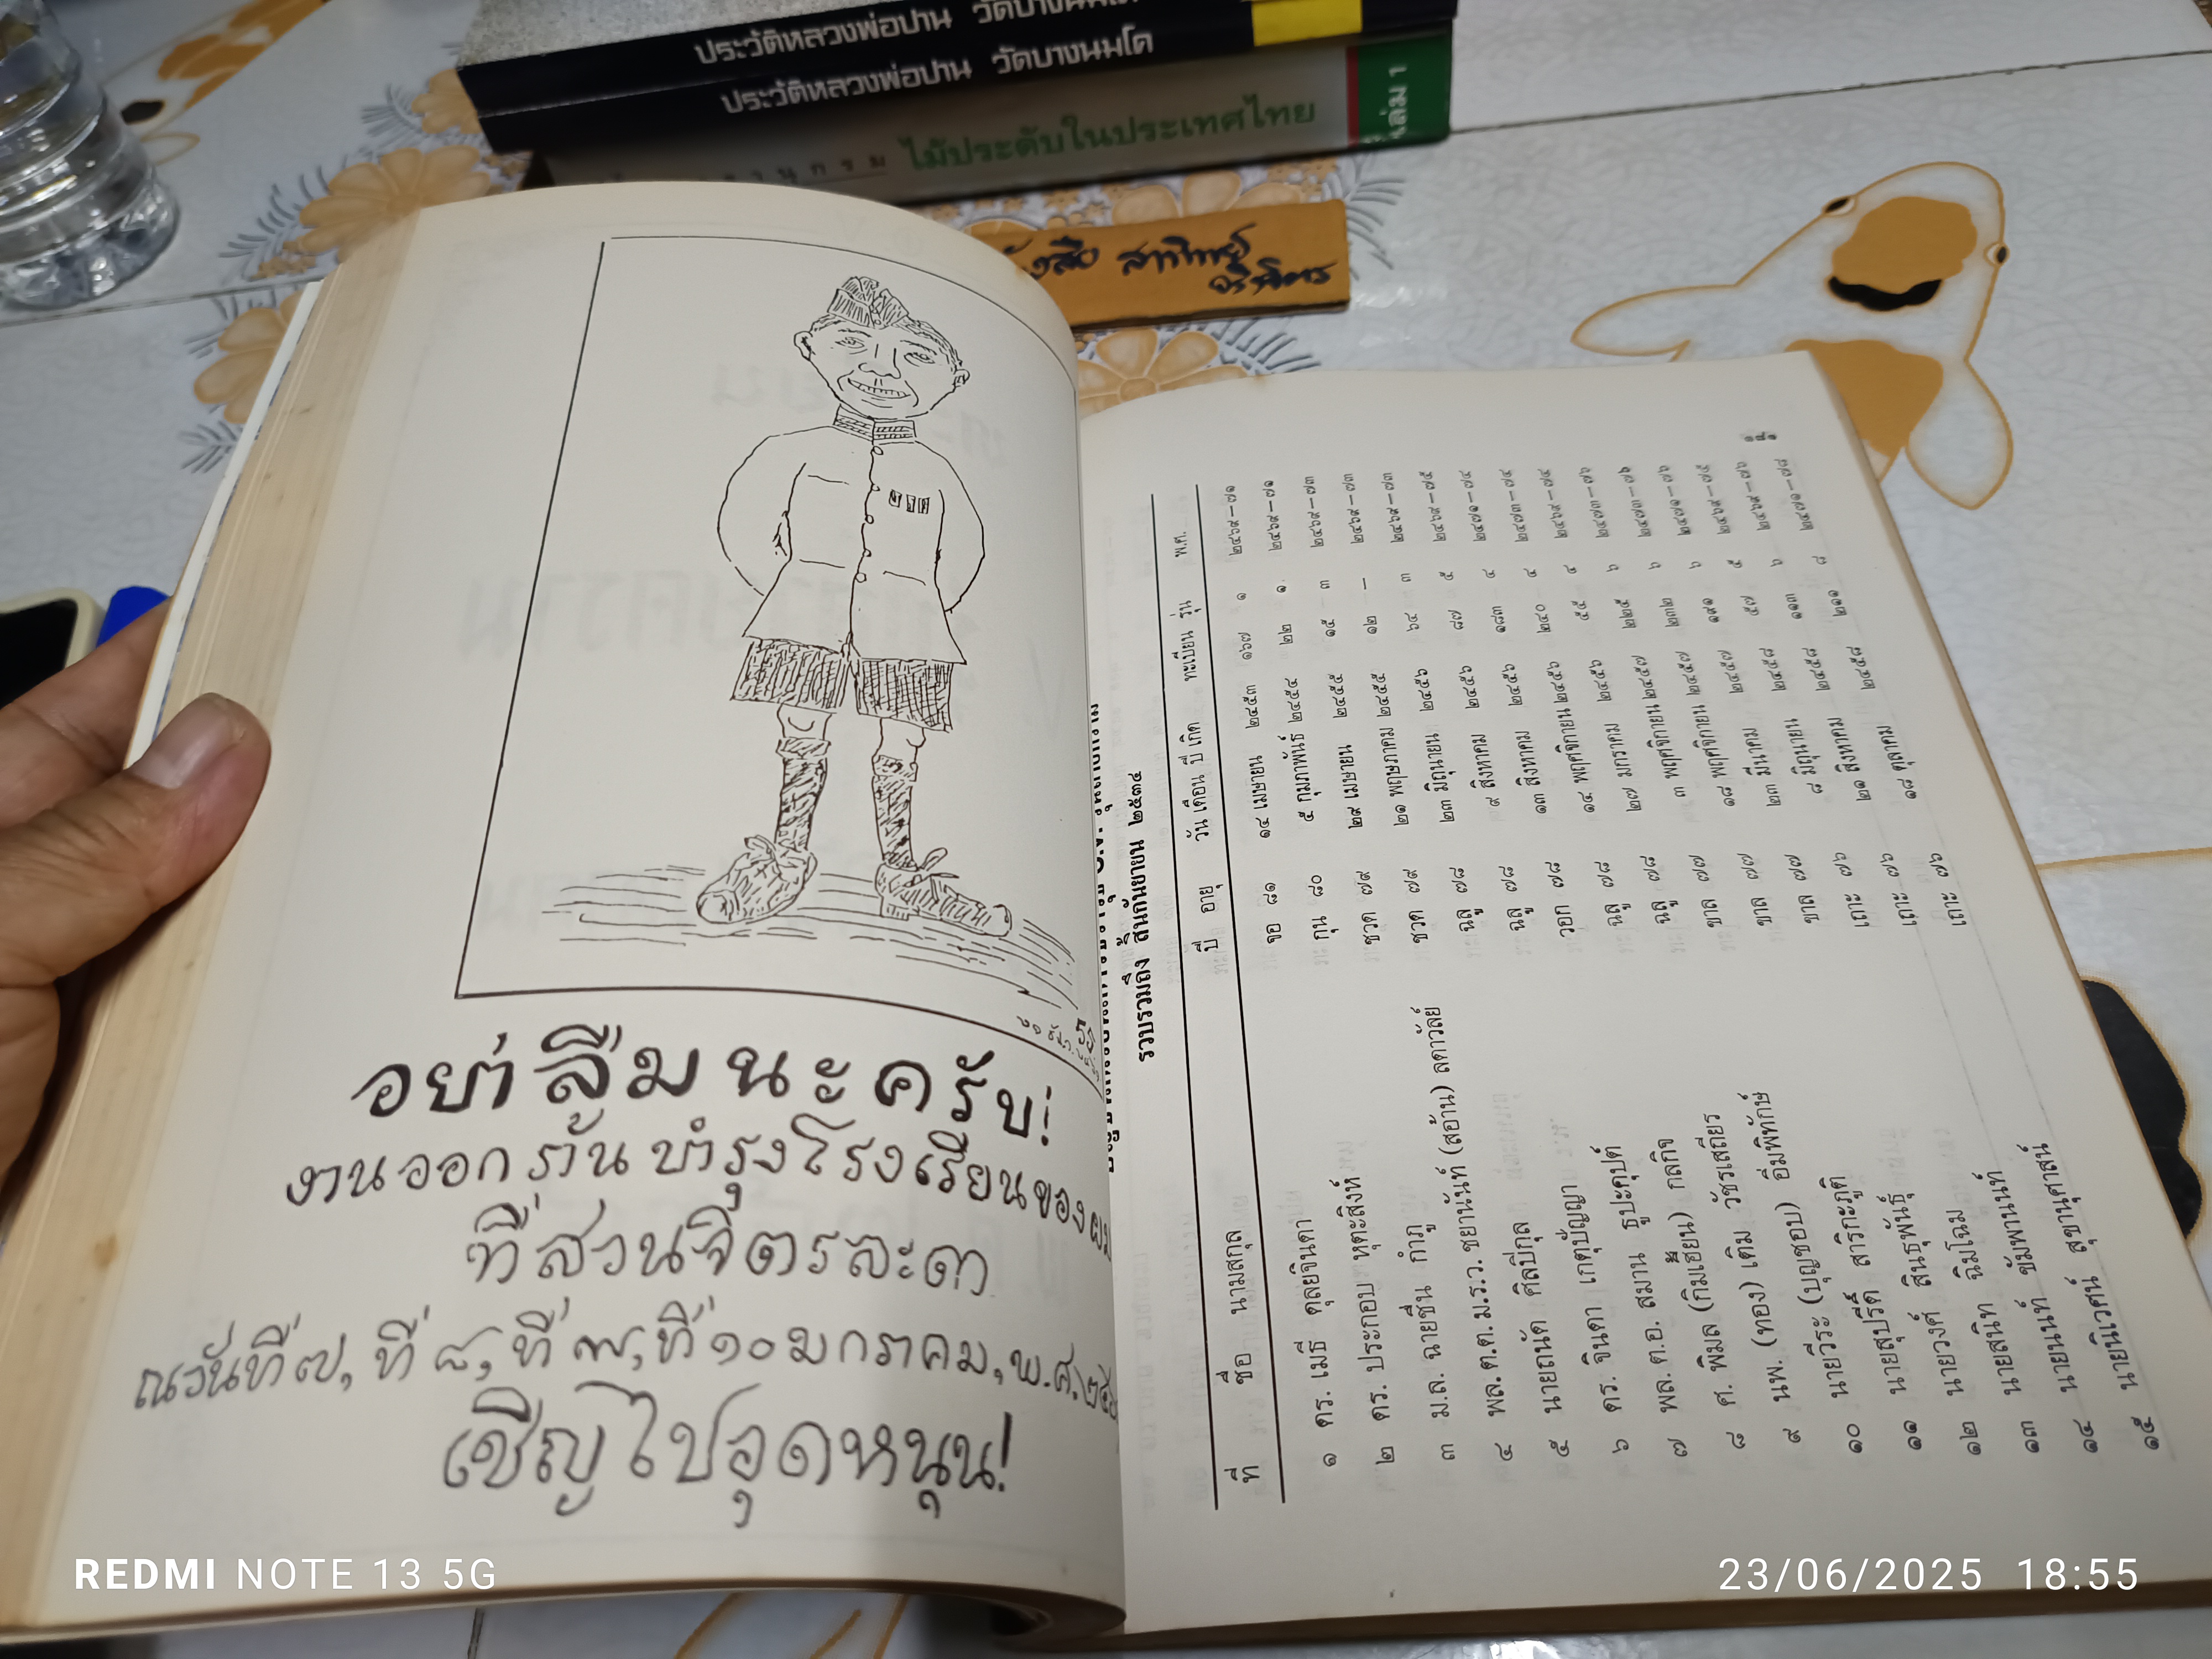 ประวัติหลวงพ่อปาน
ประวัติหลวงพ่อปาน วัดบางนมโค
ไม้ประดับในประเทศไทย เล่ม ๑
อย่าลืมนะครับ!
งานออกร้านบำรุงโรงเรียนของผม
ที่สวนจิตรละดา
ณวันที่ ๗, ที่ ๘, ที่ ๙, ที่ ๑๐ มกราคม, พ.ศ.
เชิญไปอุดหนุน!
รวบรวมถึง สิ้นกันยายน ๒๕๓๔
ที่ ชื่อ นามสกุล ปี อายุ วัน เดือน ปี เกิด ทะเบียน รุ่น พ.ศ.
๑ ดร. เมธี ดุลยจินดา จอ ๘๑ ๑๔ เมษายน ๒๔๕๓ ๑๖๗ ๑ ๒๔๖๙-๗๑
๒ ดร. ประกอบ หุตะสิงห์ กุน ๘๐ ๕ กุมภาพันธ์ ๒๔๕๔ ๒๒ ๑. ๒๔๖๙-๗๑
๓ ม.ล. ฉายชื่น กำภู ชวด ๗๙ ๒๙ เมษายน ๒๔๕๕ ๑๕ ๓ ๒๔๖๙-๗๓
๔ พล.ต.ต.ม.ร.ว. ชยานันท์ (สอ้าน) ลดาวัลย์ ชวด ๗๙ ๒๑ พฤษภาคม ๒๔๕๕ ๑๒ - ๒๔๖๙-๗๓
๕ นายถนัด ศิลปีกุล ฉลู ๗๘ ๒๓ มิถุนายน ๒๔๕๖ ๖๔ ๓ ๒๔๖๙-๗๓
๖ ดร. จินดา เกตุปัญญา ฉลู ๗๘ ๙ สิงหาคม ๒๔๕๖ ๘๗ ๕ ๒๔๖๙-๗๕
๗ พล.ต.อ. สมาน ธูปะคุปต์ วอก ๗๘ ๑๓ สิงหาคม ๒๔๕๖ ๑๘๓ ๔ ๒๔๗๑-๗๔
๘ ศ. พิมล (กิมเฮี้ยน) กลกิจ ฉลู ๗๘ ๑๔ พฤศจิกายน ๒๔๕๖ ๒๔๐ ๔ ๒๔๗๓-๗๔
๙ นพ. (ทอง) เติม วัชรเสถียร ฉลู ๗๘ ๒๗ มกราคม ๒๔๕๖ ๕๕ ๔ ๒๔๖๙-๗๔
๑๐ นายวีระ (บุญชอบ) อิ่มพิทักษ์ ขาล ๗๗ ๓ พฤศจิกายน ๒๔๕๗ ๒๒๕ ๖ ๒๔๗๓-๗๖
๑๑ นายสุปรีดิ์ สาริกะภูติ ขาล ๗๗ ๑๘ พฤศจิกายน ๒๔๕๗ ๒๓๒ ๖ ๒๔๗๓-๗๖
๑๒ นายวงศ์ สินธุพันธุ์ ขาล ๗๗ ๒๓ มีนาคม ๒๔๕๗ ๑๙๑ ๖ ๒๔๗๑-๗๖
๑๓ นายสนิท ฉิมโฉม เถาะ ๗๖ ๘ มิถุนายน ๒๔๕๘ ๕๗ ๕ ๒๔๖๙-๗๕
๑๔ นายนนท์ ขัมพานนท์ เถาะ ๗๖ ๒๑ สิงหาคม ๒๔๕๘ ๑๑๓ ๖ ๒๔๖๙-๗๖
๑๕ นายนิเวศน์ สุขานุศาสน์ เถาะ ๗๖ ๑๘ ตุลาคม ๒๔๕๘ ๒๑๑ ๘ ๒๔๗๑-๗๘
REDMI NOTE 13 5G
23/06/2025 18:55